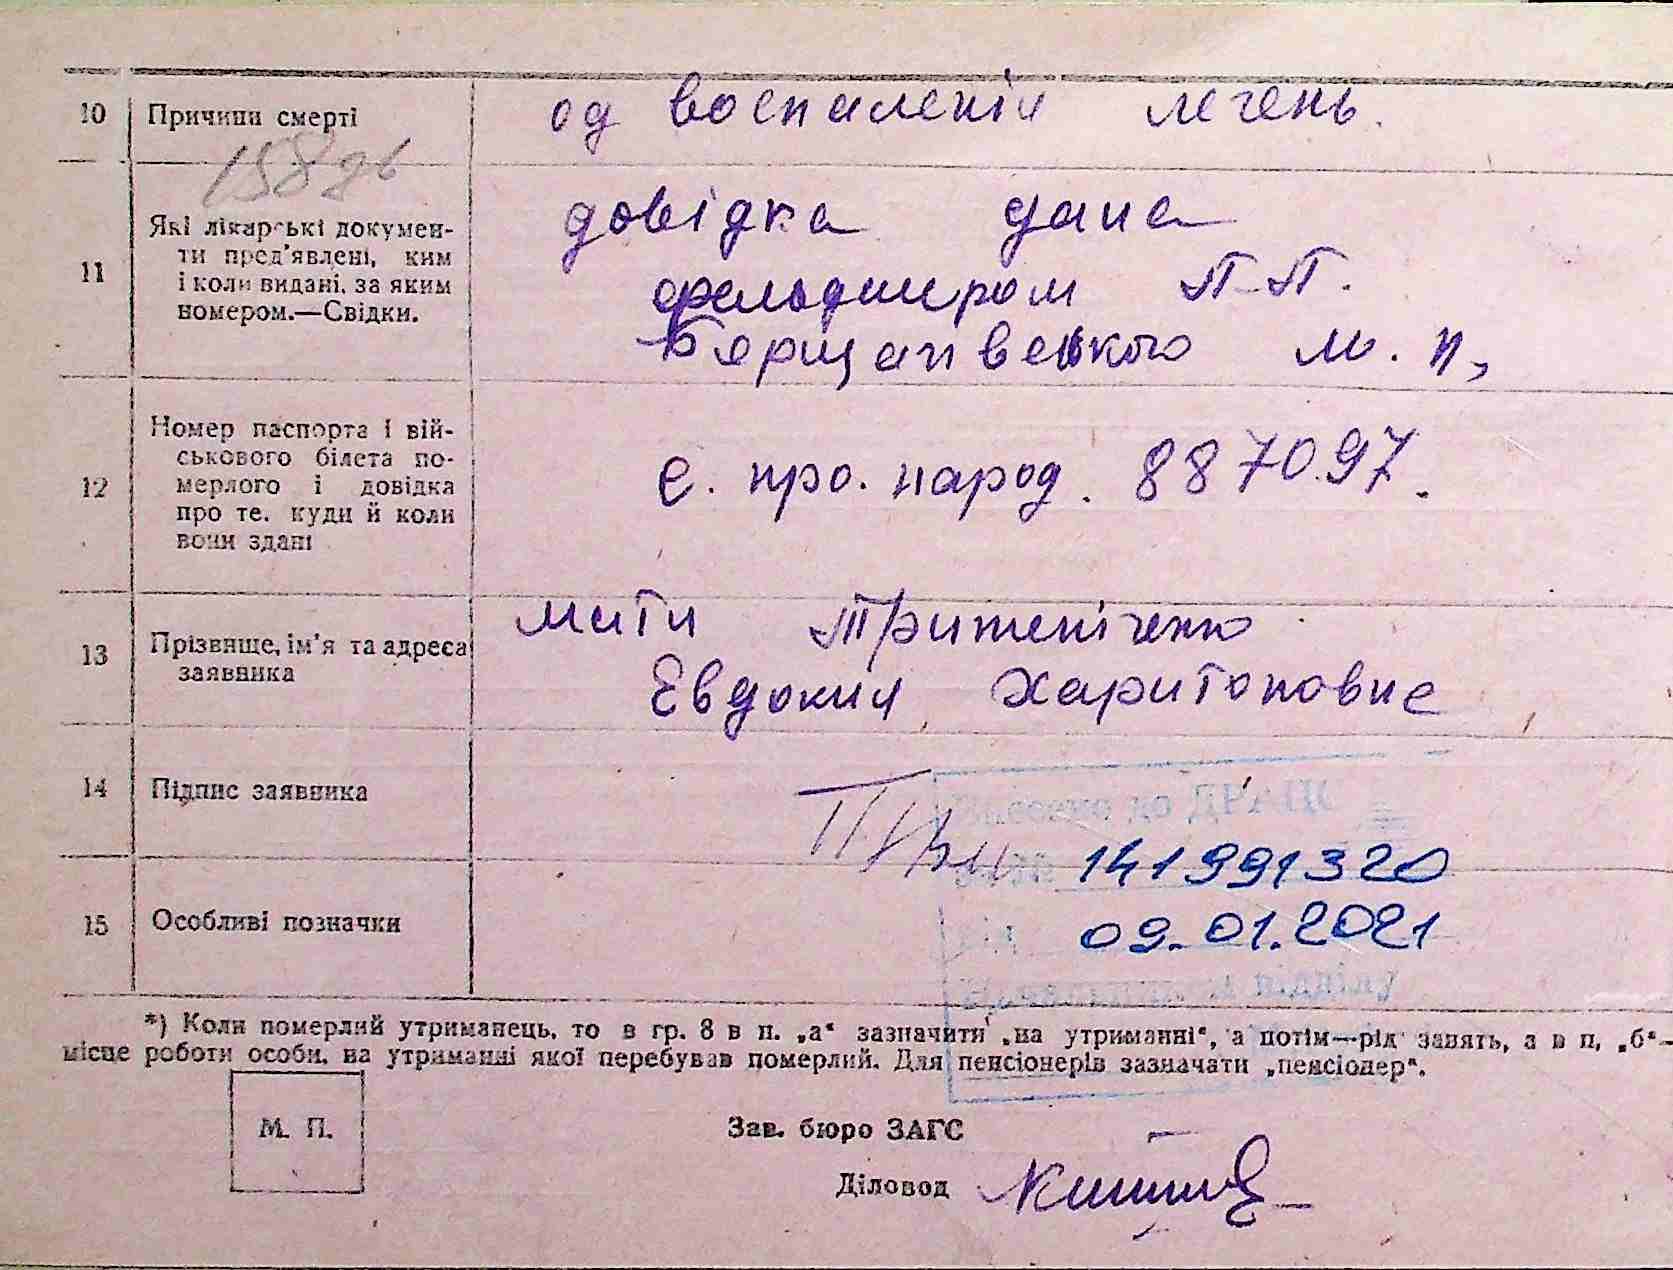 10 Причини смерті од воспаленія легень.
158 дь
11 Які лікарські докумен-
ти пред'явлені, ким
і коли видані, за яким
номером.—Свідки.
довідка дана
фельдширом П-П.
м. п,
12 Номер паспорта і вій-
ськового білета по-
мерлого і довідка
про те, куди й коли
вони здані
є. про. народ. 887097.
13 Прізвище, ім'я та адреса
заявника
мати
Евдокия Харитоновна
14 Підпис заявника
Внесено до ДРАЦС
141991320
15 Особливі позначки
від 09.01.2021
Начальник відділу
*) Коли померлий утриманець, то в гр. 8 в п. „а“ зазначити „на утриманні“, а потім—рід занять, а в п. „б“—
місце роботи особи, на утриманні якої перебував померлий. Для пенсіонерів зазначати „пенсіонер“.
М. П.
Зав. бюро ЗАГС
Діловод